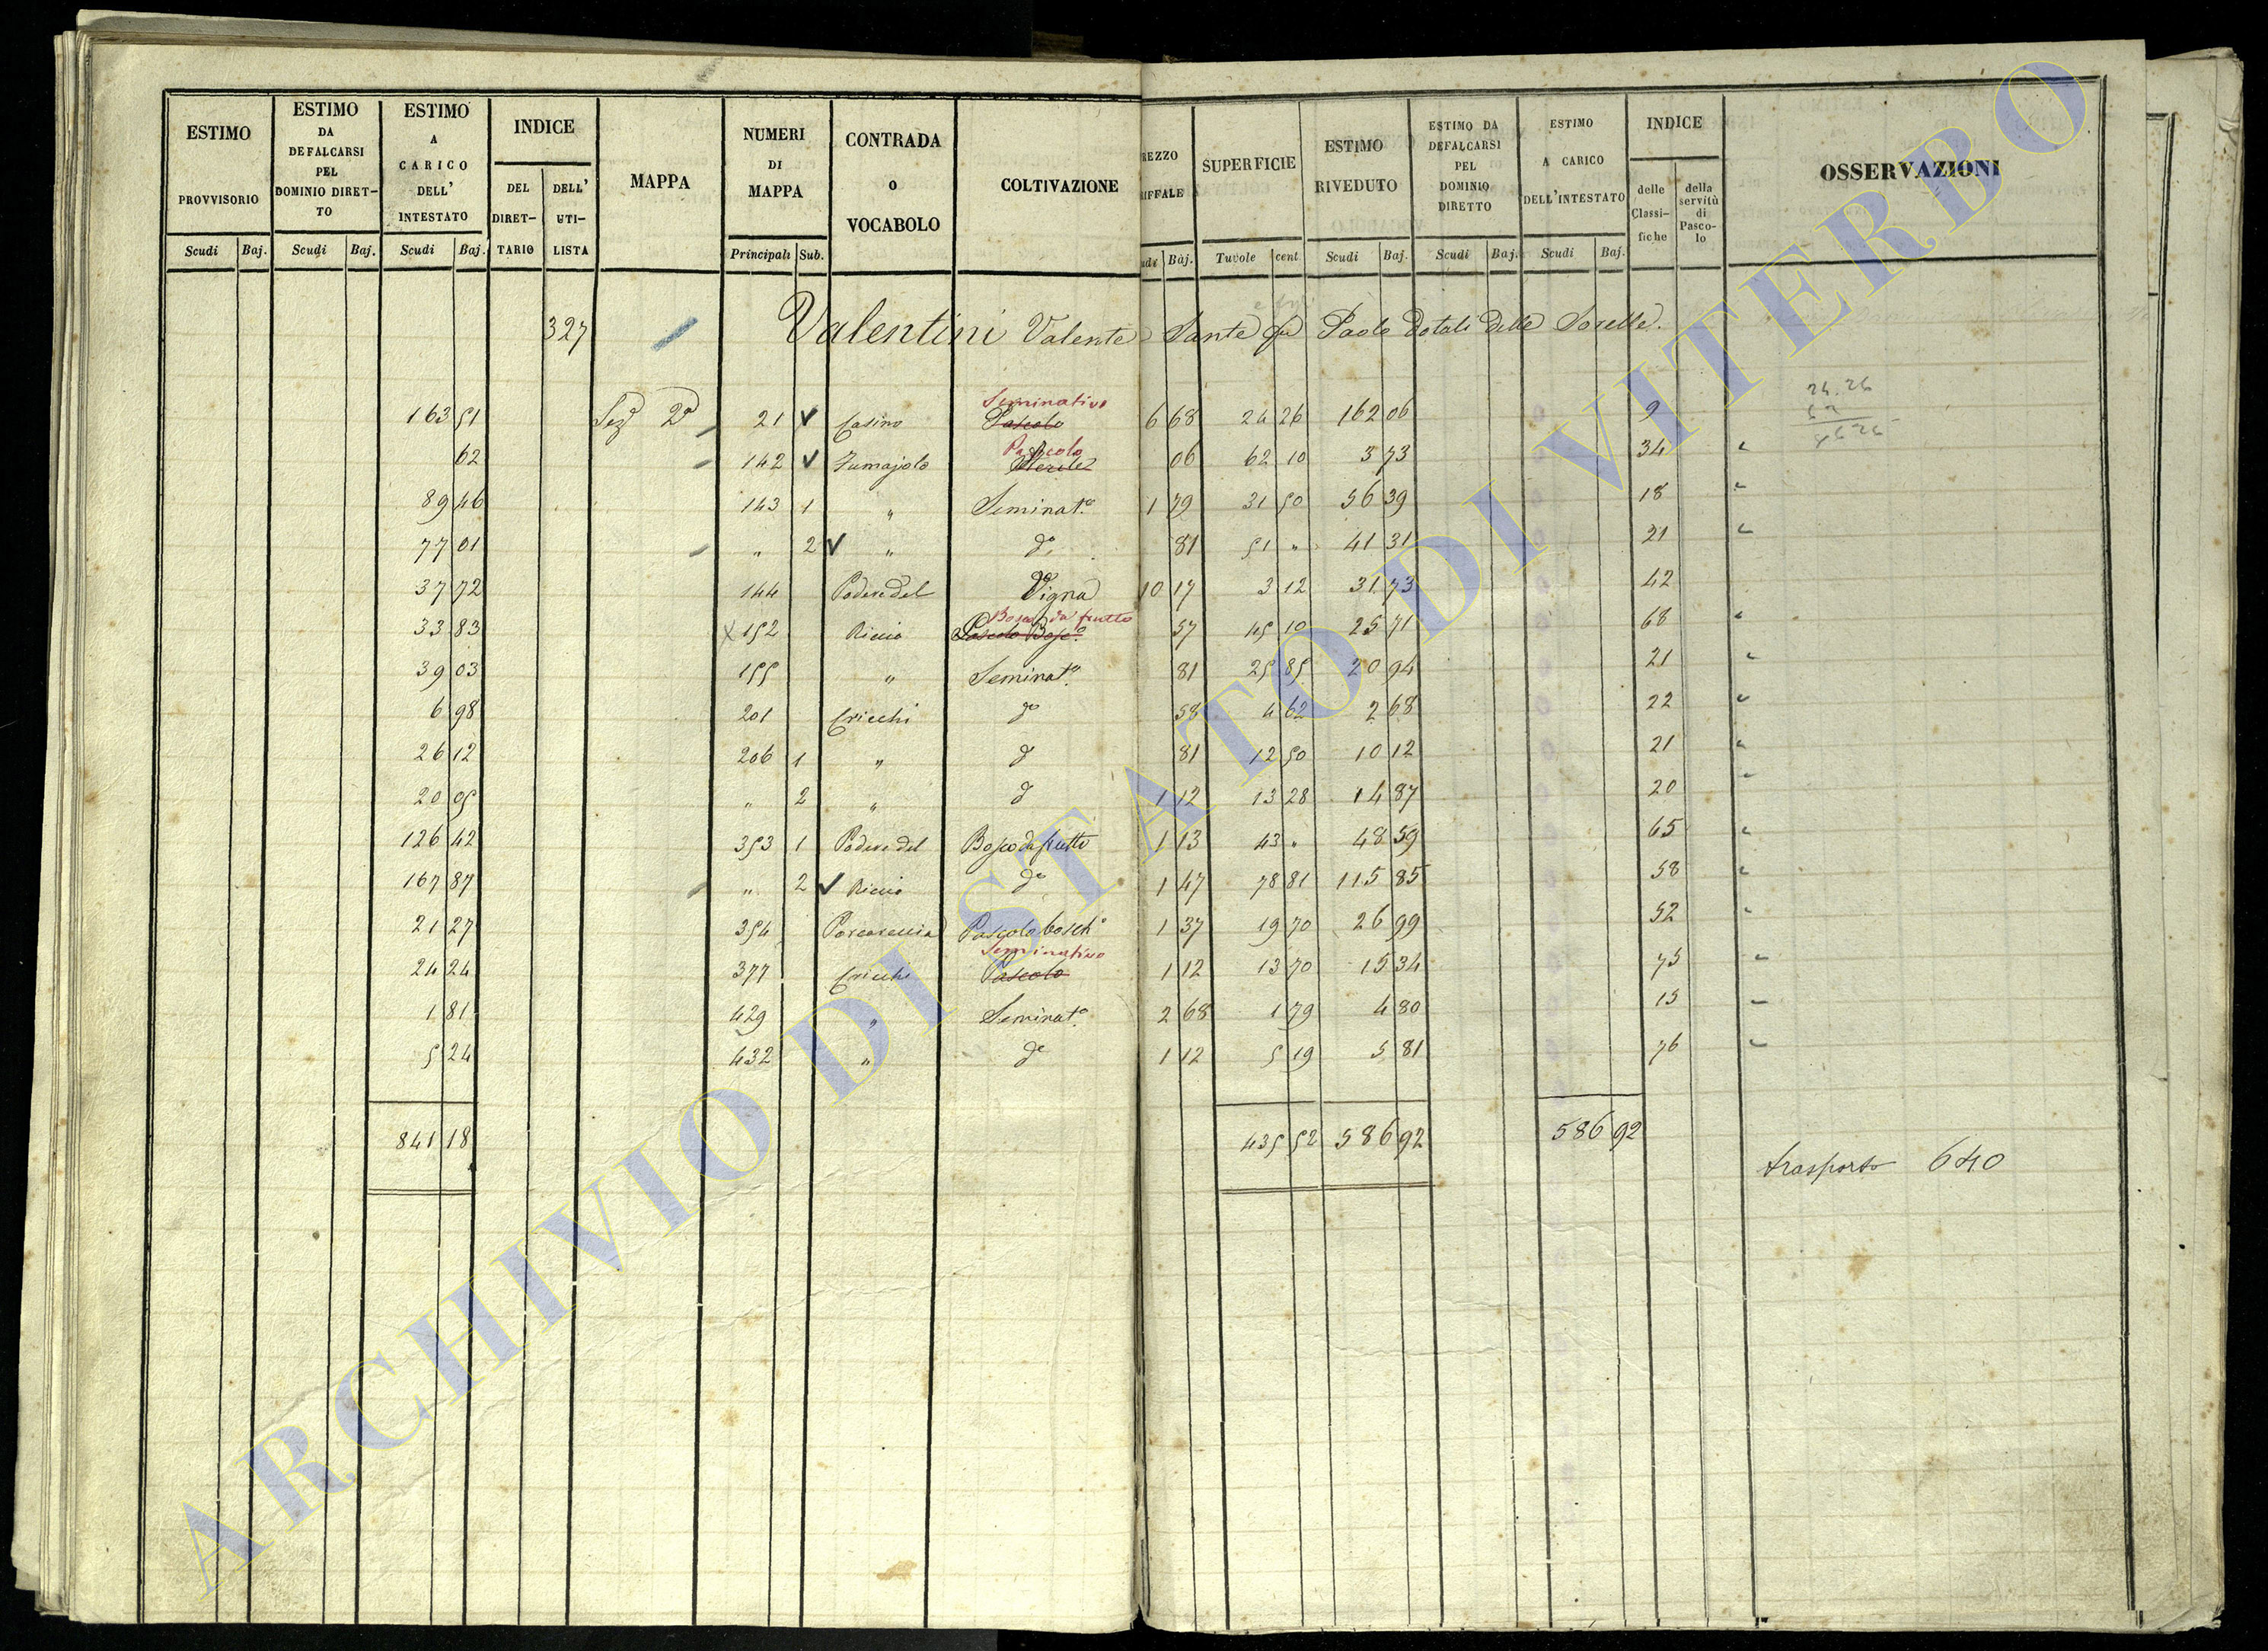 ESTIMO PROVVISORIO
ESTIMO DA DEFALCARSI PEL DOMINIO DIRET- TO
ESTIMO A CARICO DELL' INTESTATO
INDICE
DEL DIRET- TARIO
DELL' UTI- LISTA
MAPPA
NUMERI DI MAPPA
CONTRADA O VOCABOLO
COLTIVAZIONE
REZZO RIFFALE
SUPERFICIE
ESTIMO RIVEDUTO
ESTIMO DA DEFALCARSI PEL DOMINIO DIRETTO
ESTIMO A CARICO DELL'INTESTATO
INDICE
delle Classi- fiche
della servitù di Pasco- lo
OSSERVAZIONI
Scudi Baj. Scudi Baj. Scudi Baj. Principali Sub. udi Baj. Tavole cent Scudi Baj. Scudi Baj. Scudi Baj.
327 Valentini Valente Sante qm Paolo dotali delle Sorelle.
24.26
Seminativo
163 51 Sez 2a 21 Casino Pascolo 6 68 24 26 162 06 9
Pascolo
62 142 Fumajolo Sterile 06 62 10 3 73 34 "
89 46 143 1 " Seminat.o 1 79 31 50 56 39 18 "
77 01 " 2 " do 81 51 " 41 31 21 "
37 72 144 Podere del Vigna 10 17 3 12 31 73 42
Bosco da frutto
33 83 X 152 Riccio Pascolo Bosc.o 57 45 10 25 71 68 "
39 03 155 " Seminat.o 81 25 85 20 94 21 "
6 98 201 Cricchi do 58 4 62 2 68 22 "
26 12 206 1 " d 81 12 50 10 12 21 "
20 05 " 2 " d 1 12 13 28 14 87 20 "
126 42 353 1 Podere del Bosco da frutto 1 13 43 " 48 59 65 "
167 87 " 2 Riccio do 1 47 78 81 115 85 58 "
21 27 354 Porcareccia Pascolo bosch.o 1 37 19 70 26 99 52 "
Seminativo
24 24 377 Cricchi Pascolo 1 12 13 70 15 34 75 "
1 81 429 " Seminat.o 2 68 1 79 4 80 15 "
5 24 432 " do 1 12 5 19 5 81 76 "
841 18 435 52 586 92 586 92
trasporto 640
ARCHIVIO DI STATO DI VITERBO